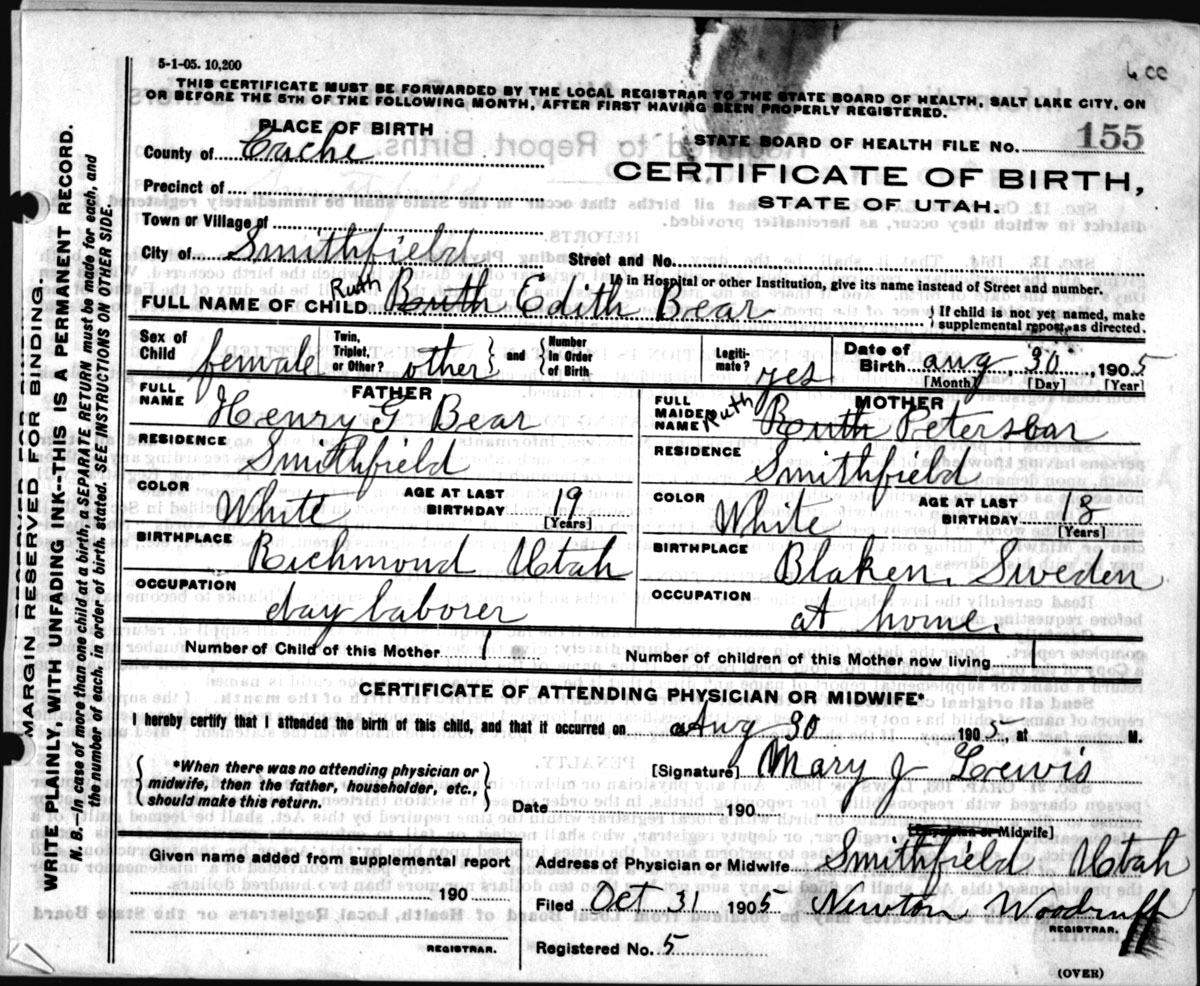 5-1-05. 10,200
6 cc
THIS CERTIFICATE MUST BE FORWARDED BY THE LOCAL REGISTRAR TO THE STATE BOARD OF HEALTH, SALT LAKE CITY, ON
OR BEFORE THE 5TH OF THE FOLLOWING MONTH, AFTER FIRST HAVING BEEN PROPERLY REGISTERED.
PLACE OF BIRTH
STATE BOARD OF HEALTH FILE NO. 155
County of Cache
CERTIFICATE OF BIRTH,
STATE OF UTAH.
Precinct of
Town or Village of
City of Smithfield Street and No.
If in Hospital or other Institution, give its name instead of Street and number.
FULL NAME OF CHILD Ruth Bruth Edith Bear { If child is not yet named, make supplemental report, as directed.
Sex of Child female Twin, Triplet, or Other? other } and { Number In Order of Birth Legiti-mate? yes Date of Birth aug 30, 1905
[Month] [Day] [Year]
FATHER
FULL NAME Henry G Bear
MOTHER
FULL MAIDEN NAME Ruth Bruth Petersbar
RESIDENCE Smithfield
RESIDENCE Smithfield
COLOR White AGE AT LAST BIRTHDAY 19 [Years]
COLOR White AGE AT LAST BIRTHDAY 18 [Years]
BIRTHPLACE Richmond Utah
BIRTHPLACE Blaken, Sweden
OCCUPATION day laborer
OCCUPATION at home.
Number of Child of this Mother 1
Number of children of this Mother now living 1
CERTIFICATE OF ATTENDING PHYSICIAN OR MIDWIFE*
I hereby certify that I attended the birth of this child, and that it occurred on Aug 30 1905, at M.
{ *When there was no attending physician or midwife, then the father, householder, etc., should make this return. }
[Signature] Mary J Lewis
Date 190
or Midwife]
Given name added from supplemental report
190
REGISTRAR.
Address of Physician or Midwife Smithfield Utah
Filed Oct 31 1905 Newton Woodruff
REGISTRAR.
Registered No. 5
(OVER)
MARGIN RESERVED FOR BINDING.
WRITE PLAINLY, WITH UNFADING INK--THIS IS A PERMANENT RECORD.
N. B.—In case of more than one child at a birth, a SEPARATE RETURN must be made for each, and
the number of each, in order of birth, stated. SEE INSTRUCTIONS ON OTHER SIDE.